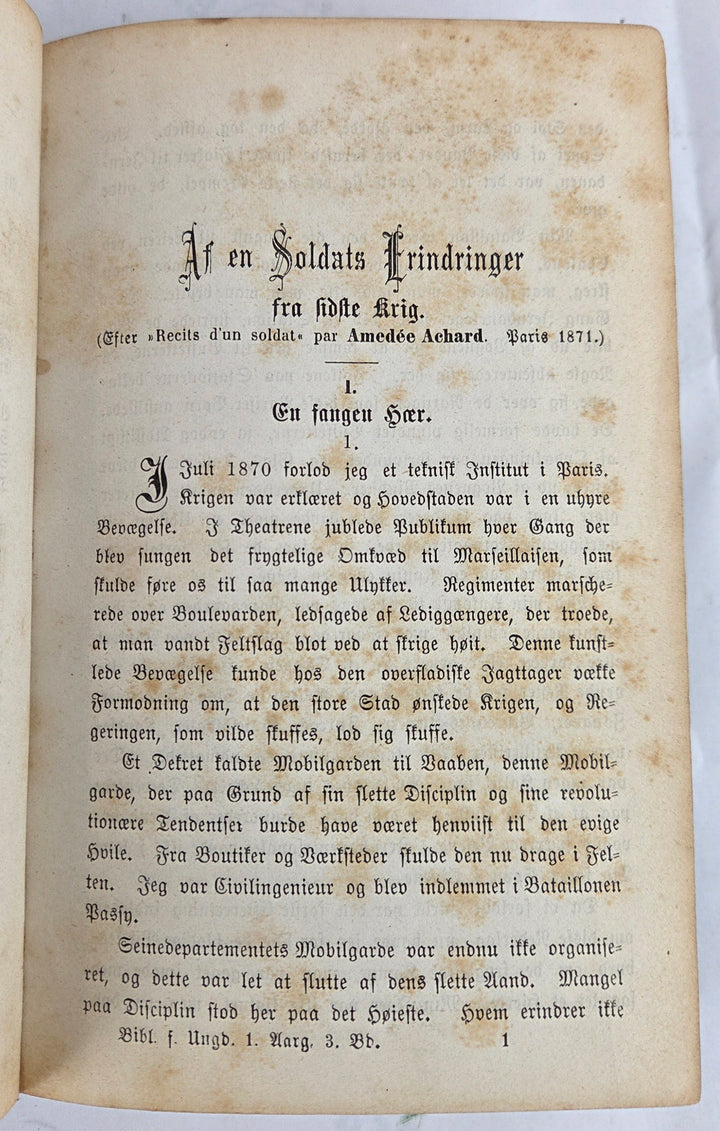 Af en Soldats Erindringer
fra sidste Krig.
(Efter »Recits d'un soldat« par Amedée Achard. Paris 1871.)
I.
En fangen Hær.
1.
I Juli 1870 forlod jeg et teknisk Institut i Paris.
Krigen var erklæret og Hovedstaden var i en uhyre
Bevægelse. I Theatrene jublede Publikum hver Gang der
blev sungen det frygtelige Omkvæd til Marseillaisen, som
skulde føre os til saa mange Ulykker. Regimenter marsche-
rede over Boulevarden, ledsagede af Lediggængere, der troede,
at man vandt Feltslag blot ved at skrige høit. Denne kunst-
lede Bevægelse kunde hos den overfladiske Jagttager vække
Formodning om, at den store Stad ønskede Krigen, og Re-
geringen, som vilde skuffes, lod sig skuffe.
Et Dekret kaldte Mobilgarden til Vaaben, denne Mobil-
garde, der paa Grund af sin slette Disciplin og sine revolu-
tionære Tendentser burde have været henviist til den evige
Hvile. Fra Boutiker og Værksteder skulde den nu drage i Fel-
ten. Jeg var Civilingenieur og blev indlemmet i Bataillonen
Passy.
Seinedepartementets Mobilgarde var endnu ikke organise-
ret, og dette var let at slutte af dens slette Aand. Mangel
paa Disciplin stod her paa det Høieste. Hvem erindrer ikke
Bibl. f. Ungd. 1. Aarg. 3. Bd. 1